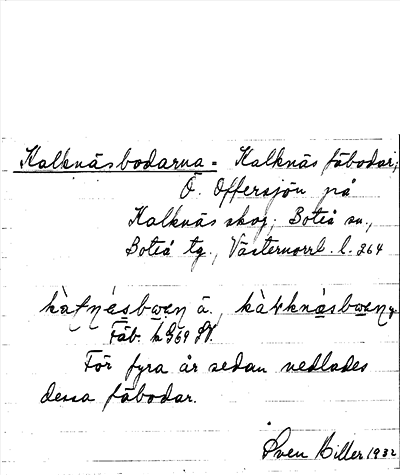 Kalknäsbodarna = Kalknäs fäbodar,
Ö. Offersjön på
Kalknäs skog, Boteå sn.,
Boteå tg., Västernorrl. l. 264
Fäb.
För fyra år sedan nedlades
dessa fäbodar.
Sven Hiller 1932